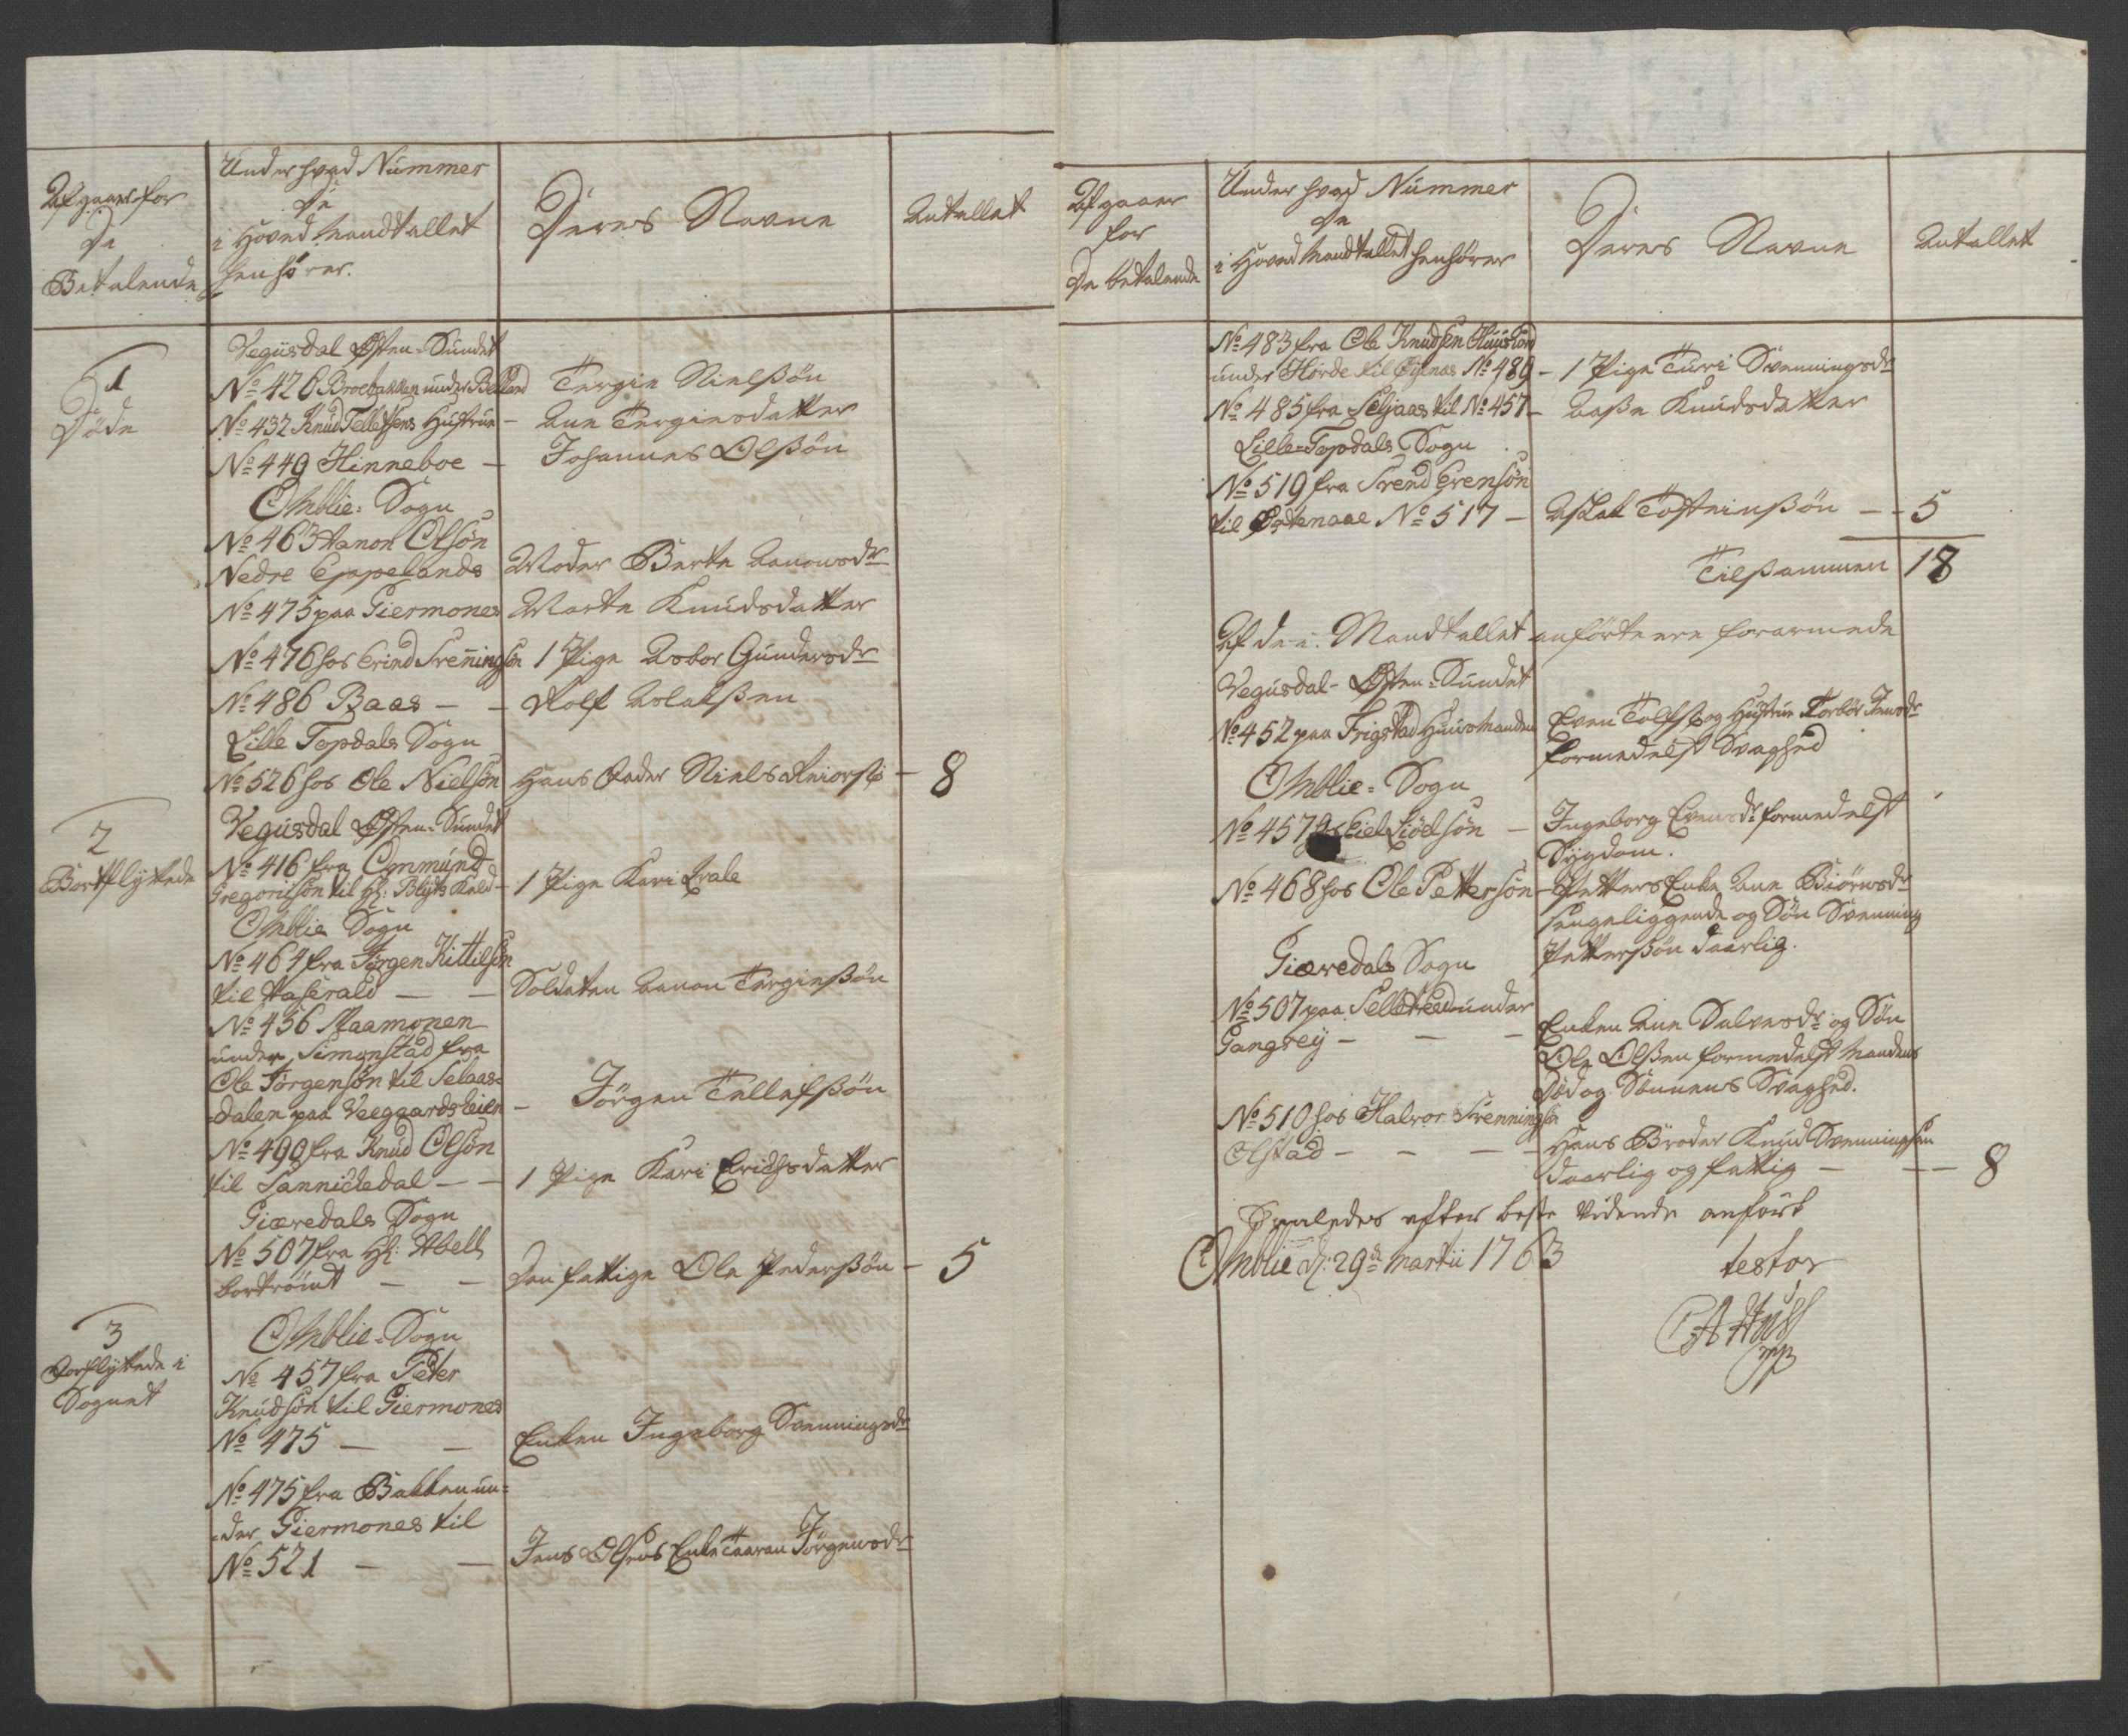 Afgaaer for
De
Betalende
Under hvad Nummer
De
i Hoved Mandtallet
henhører.
Deres Navne
Antallet
1
Døde
Vegusdal Østen-Sundet
No 426 Broebakken under Belland Tergie Nielssøn
No 432 Knud Tellefsens Hustrue - Ane Tergiesdatter
No 449 Hinneboe - Johannes Olssøn
Omblie-Sogn
No 463 Aanon Olsøn
Nedre Eppelands Moder Berte Aanonsdr
No 475 paa Giermones Marte Knudsdatter
No 476 hos Erind Svenningsøn 1 Pige Asbor Gundersdr
No 486 Baas - - Rolf Aslakssen
Lille Topdals Sogn
No 526 hos Ole Nielsøn Hans Fader Niels - 8
2
Bortflyttede
Vegusdal Østen-Sundet
No 416 fra Omund
Gregorisøn til Hr: Blychs Kald - 1 Pige Kari
Omblie Sogn
No 464 fra Jørgen Kittilsøn
til Haserald - - Soldaten Aanon Tergiessøn
No 456 Maamonen
under Simonstad fra
Ole Jørgensøn til Selaas-
-dalen paa Veegaardsheien - Jørgen Tellefssøn
No 490 fra Knud Olsøn
til Sannichedal - - 1 Pige Kari Erichsdatter
Giæredals Sogn
No 507 fra Hr: Abell
bortrømt - - Den fattige Ole Pederssøn - 5
3
Forflyttede i
Sognet
Omblie-Sogn
No 457 fra Peter
Knudsøn til Giermones
No 475 - - Enken Ingeborg Svenningsdr
No 475 fra Bakken un-
-der Giermones til
No 521 - - Jens Olsens Enke Taaran Jørgensdr
Afgaaer
for
De betalende
Under hvad Nummer
De
i Hoved Mandtallet henhører
Deres Navne
Antallet
No 483 fra Ole Knudsen
under Hørde til No 489 - 1 Pige Turi Svenningsdr
No 485 fra Seljaas til No 457 - Aase Knudsdatter
Lille-Topdals Sogn
No 519 fra Svend Evensøn
til No 517 - Aslak Tosteinssøn - - 5
Tilsammen 18
Af de i Mandtallet anførte ere forarmede
Vegusdal-Østen-Sundet
No 452 paa Frigstad Huusmanden Even Tolfs: og Hustrue Torbør Jensdr
formedelst Svaghed
Omblie-Sogn
No 457 hos Eiel Liøelsøn - Ingeborg Evensdr formedelst
Sygdom.
No 468 hos Ole Pettersøn - Petters Enke Ane Biørnsdr
sengeliggende og Søn Svenning
Petterssøn daarlig.
Giæredals Sogn
No 507 paa under
Gangsey - - - Enken Ane Salvesdr og Søn
Ole Olssen formedelst Mandens
Død og Sønnens Svaghed.
No 510 hos Halvor Svenningsø
Olstad - - - - Hans Broder Knud Svenningsøn
daarlig og fattig - - - 8
Saaledes efter beste Vidende anført
Omblie d: 29de Martii 1763
testor